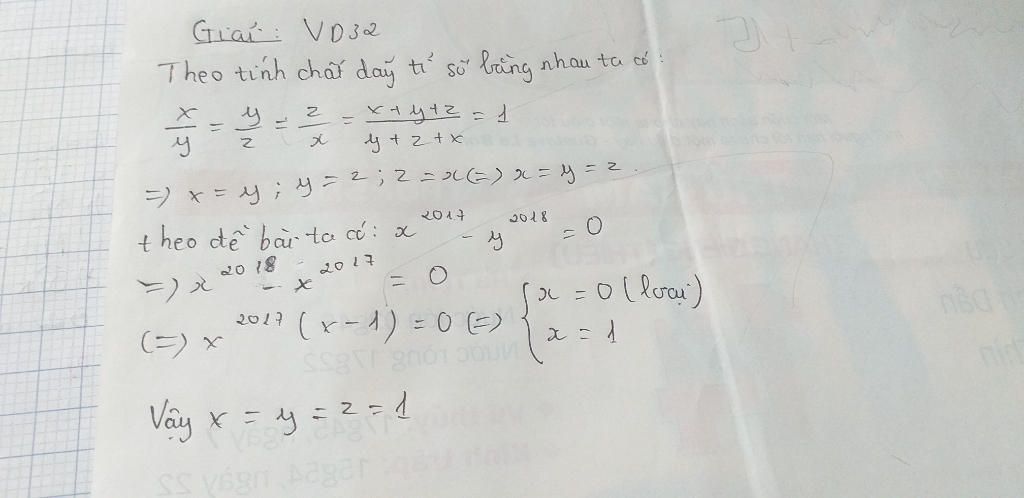 Giải: VD32
Theo tính chất dãy tỉ số bằng nhau ta có:
x/y = y/z = z/x = (x+y+z)/(y+z+x) = 1
=) x = y ; y = z ; z = x (=) x = y = z.
theo đề bài ta có: x^2017 - y^2018 = 0
=) x^2018 - x^2017 = 0
(=) x^2017 (x-1) = 0 (=) { x = 0 (loại)
x = 1
Vậy x = y = z = 1